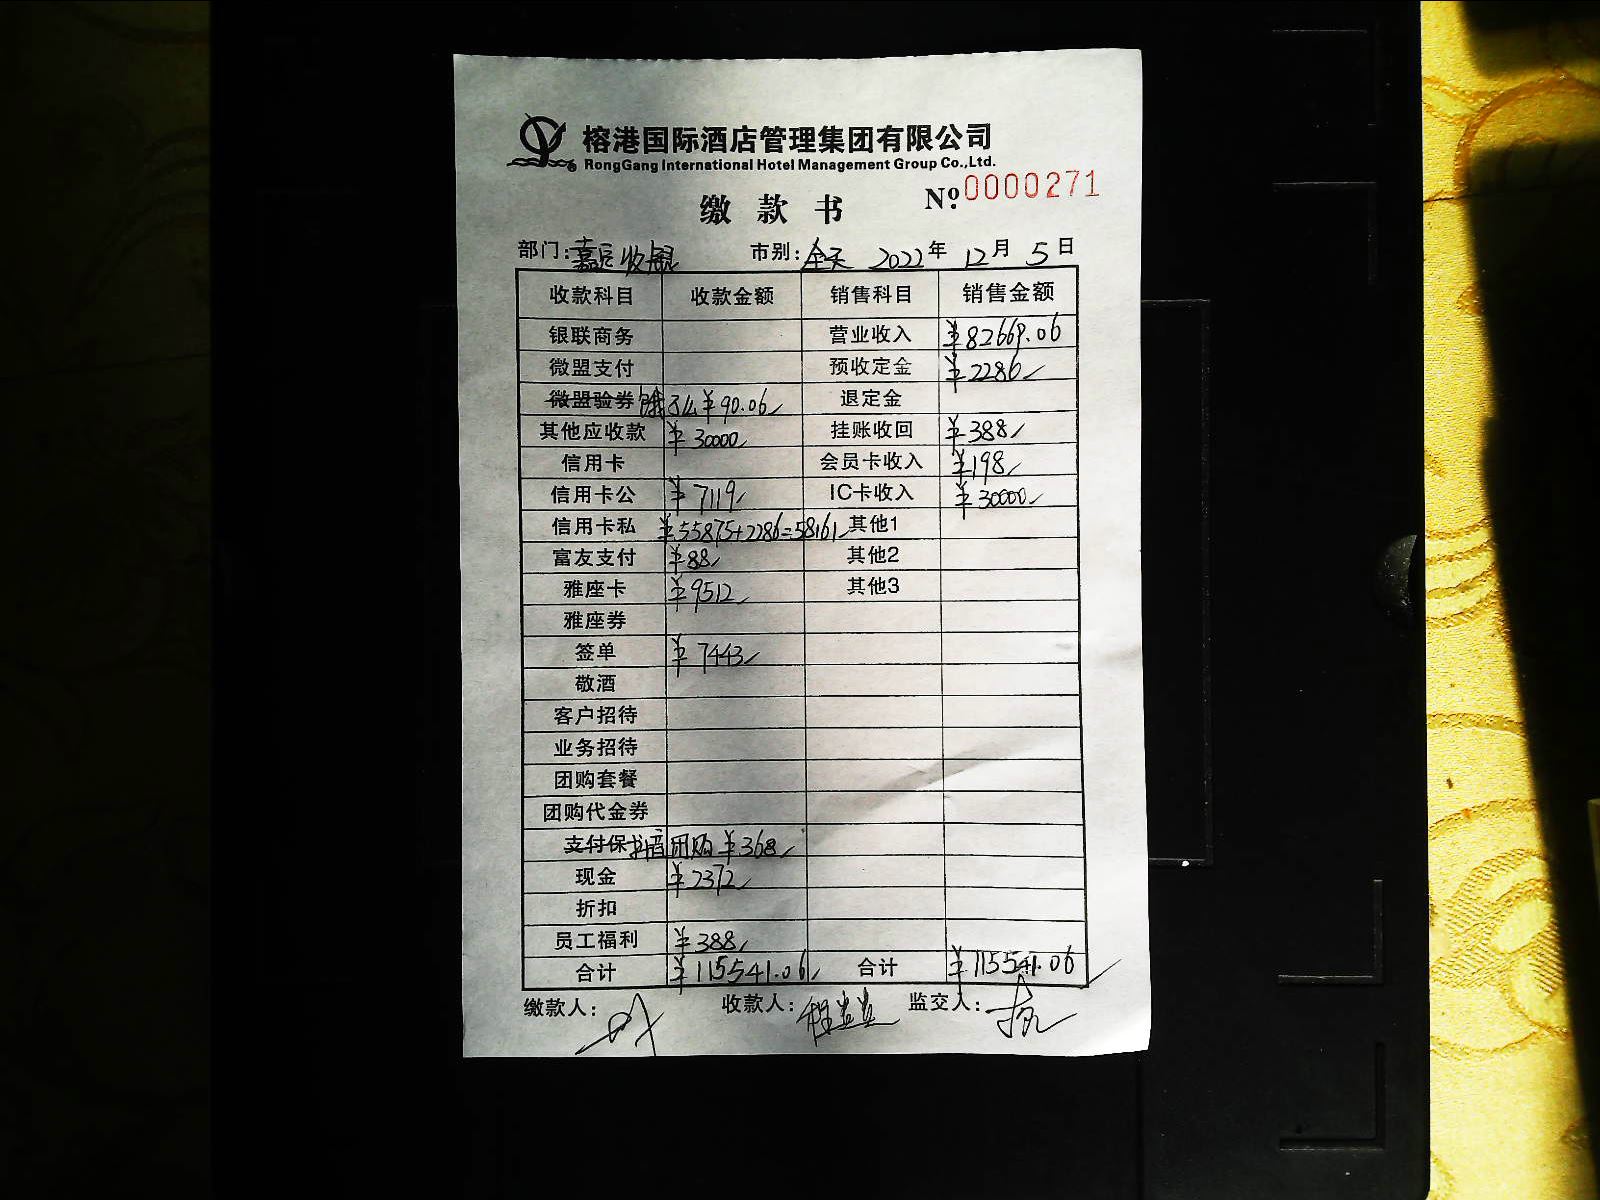 榕港国际酒店管理集团有限公司
RongGang International Hotel Management Group Co.,Ltd.
缴款书 Nº 0000271
部门：嘉宸收银 市别：全天 2022年 12月 5日
收款科目 收款金额 销售科目 销售金额
银联商务 营业收入 ¥82669.06
微盟支付 预收定金 ¥2286
微盟验券 饿了么 ¥90.06 退定金
其他应收款 ¥30000 挂账收回 ¥388
信用卡 会员卡收入 ¥198
信用卡公 ¥7119 IC卡收入 ¥30000
信用卡私 ¥55875+2286=58161 其他1
富友支付 ¥88 其他2
雅座卡 ¥9512 其他3
雅座券
签单 ¥7443
敬酒
客户招待
业务招待
团购套餐
团购代金券
支付保 抖音团购 ¥368
现金 ¥2372
折扣
员工福利 ¥388
合计 ¥115541.06 合计 ¥115541.06
缴款人： 收款人：程 监交人：